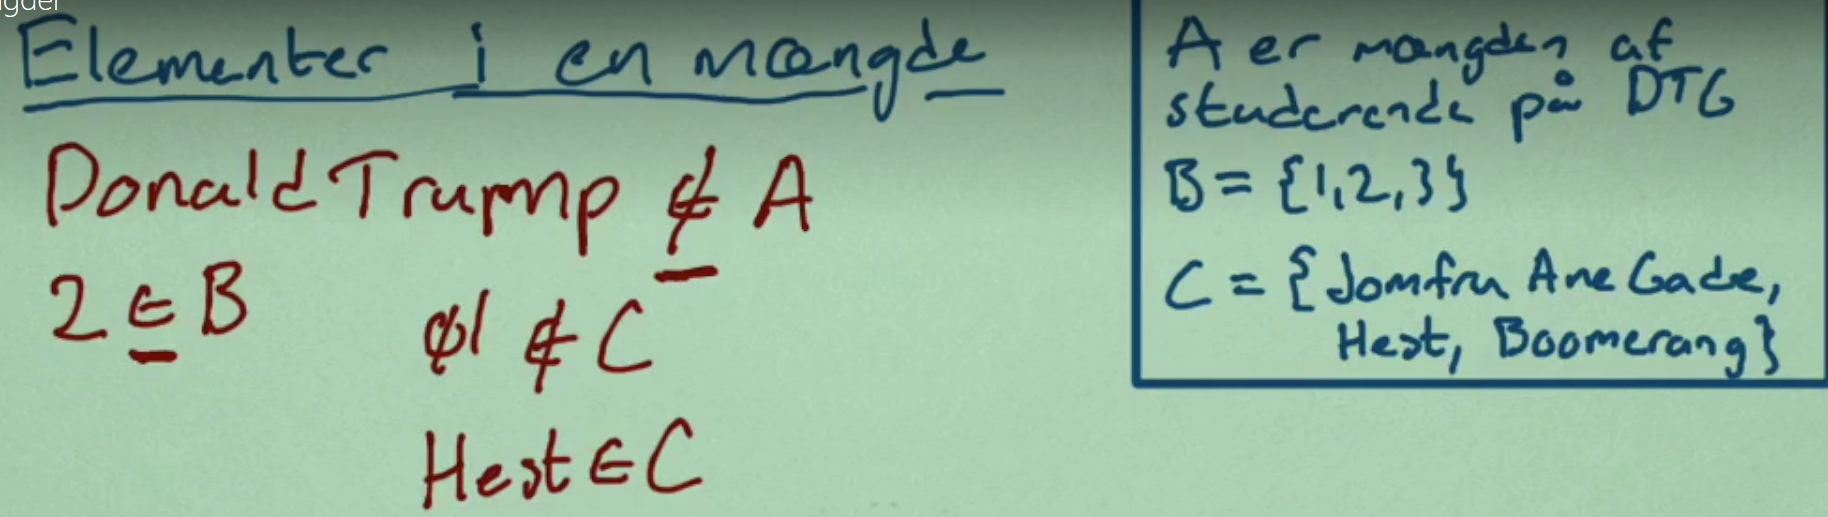 Elementer i en mængde
Donald Trump ∉ A
2 ∈ B
øl ∉ C
Hest ∈ C
A er mængden af
studerende på DTG
B = {1,2,3}
C = {Jomfru Ane Gade,
Hest, Boomerang}